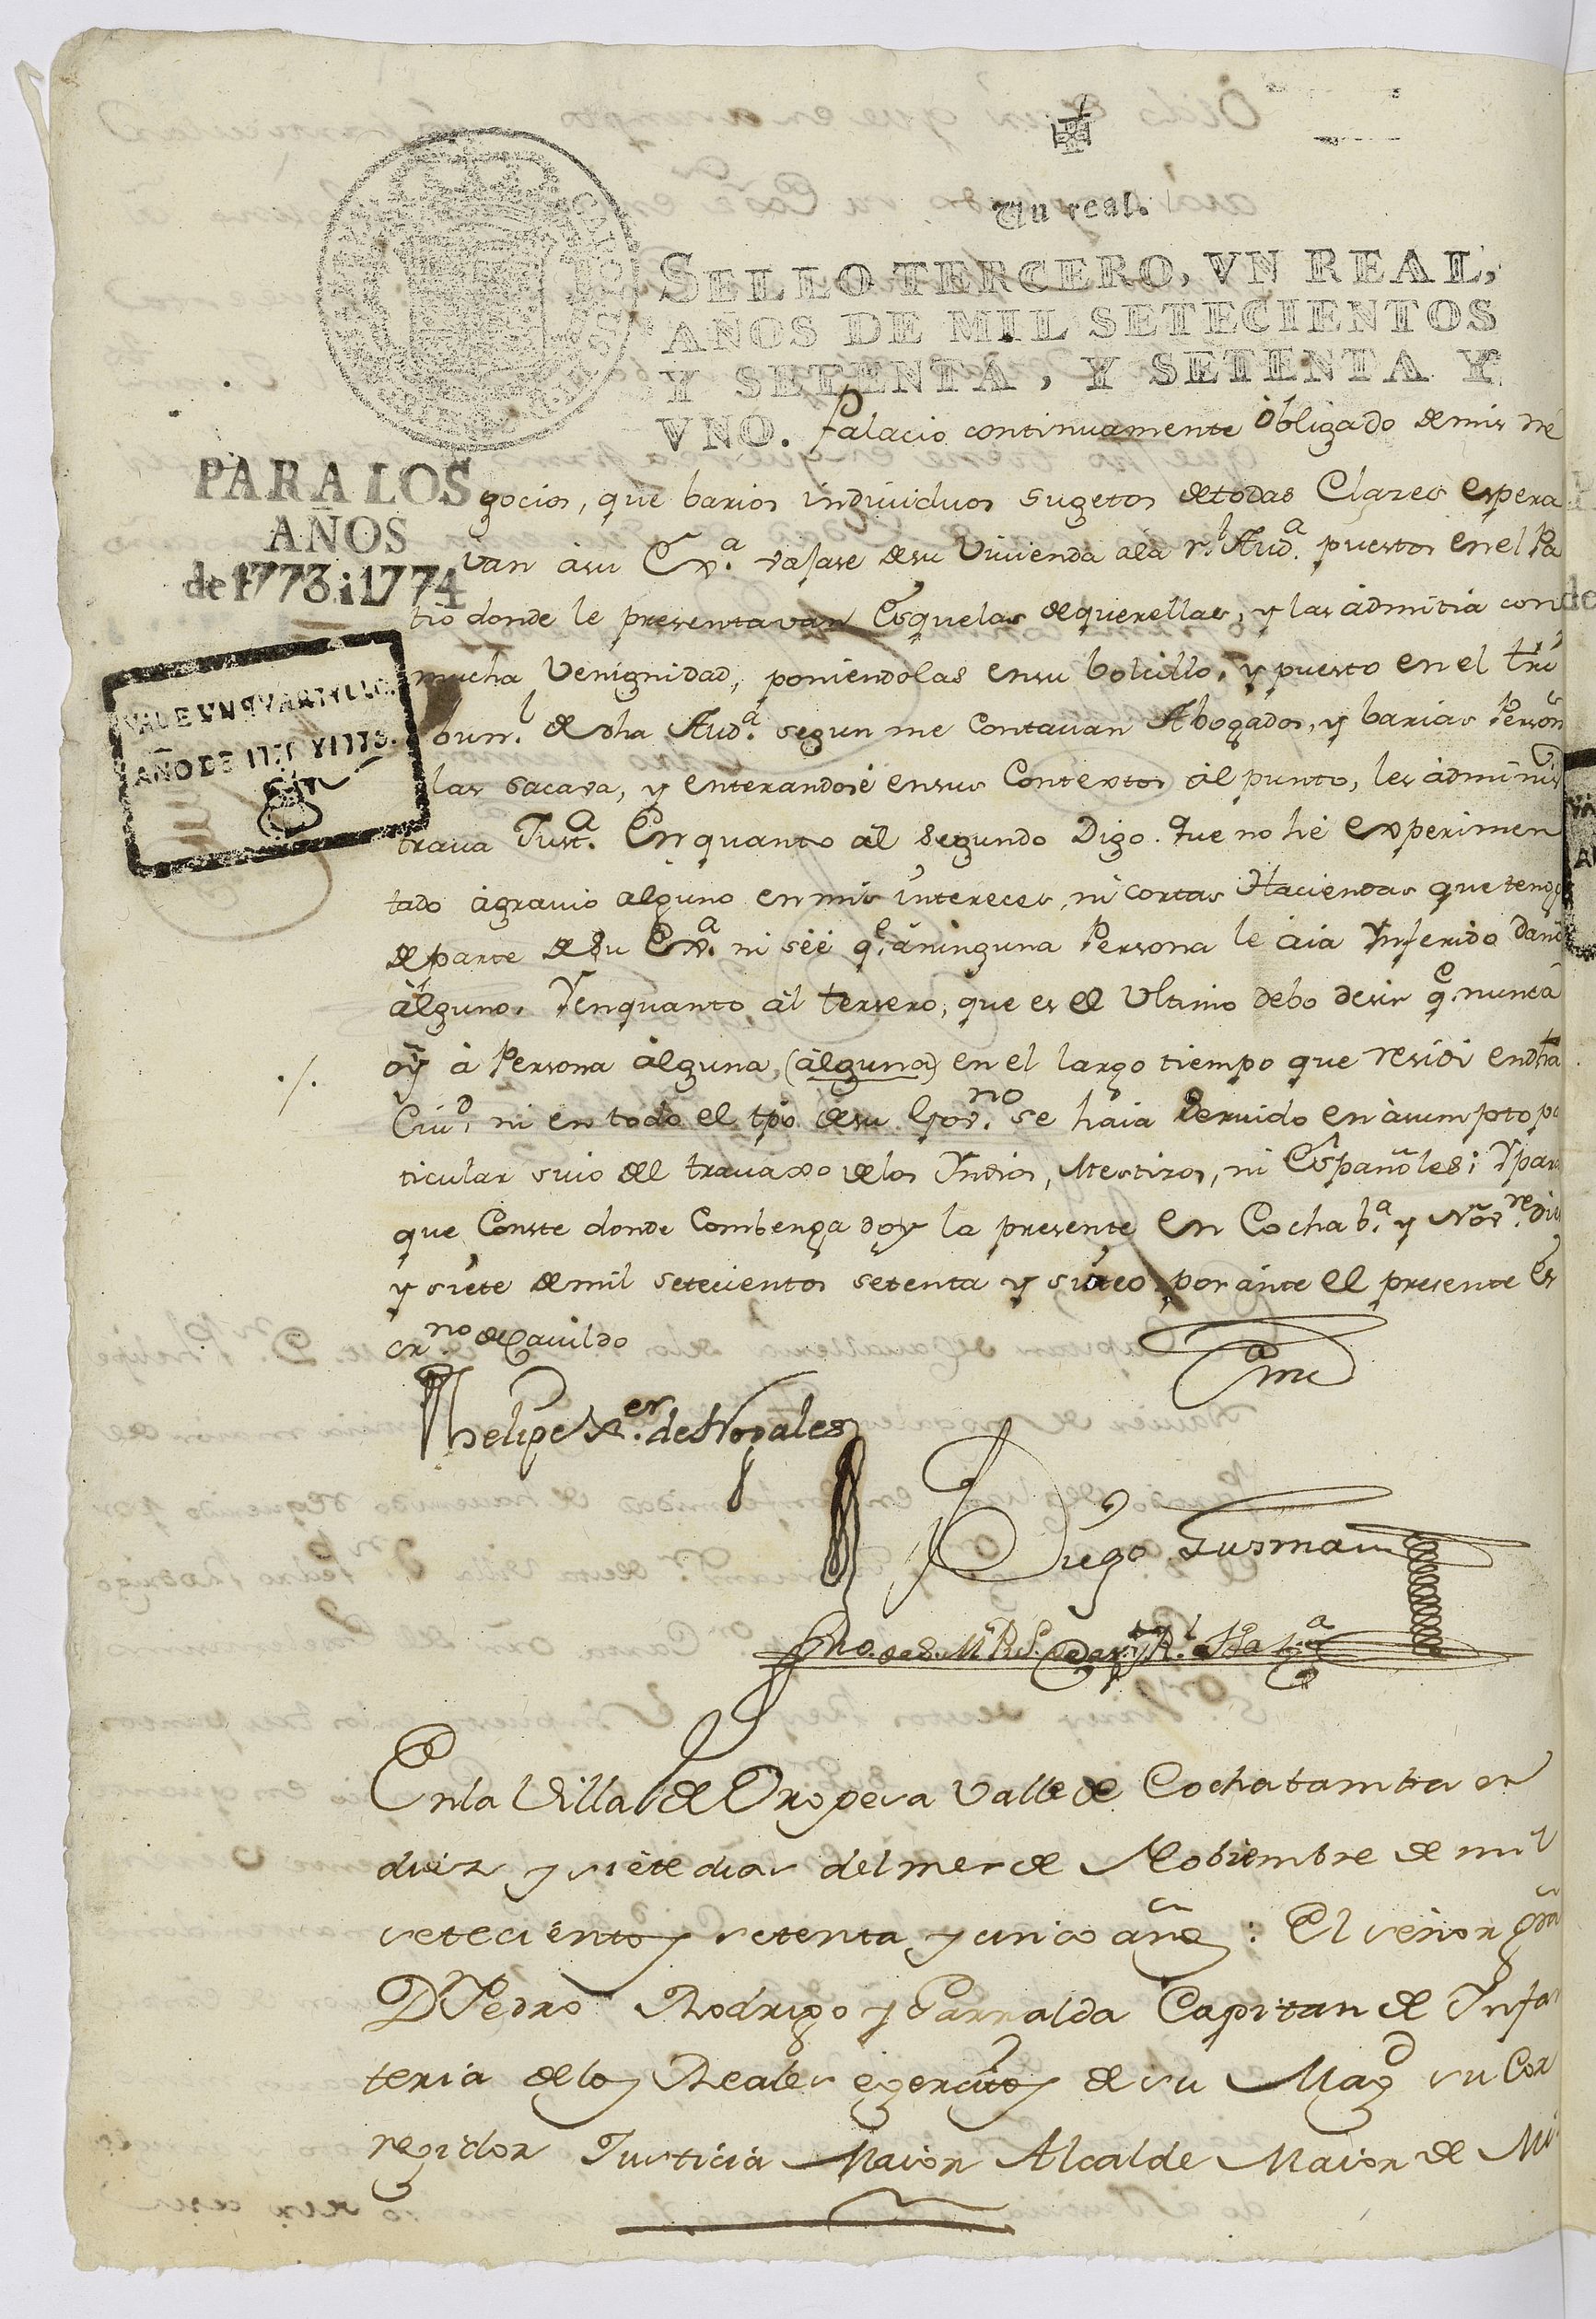 Un real.
SELLO TERCERO, VN REAL,
AÑOS DE MIL SETECIENTOS
Y SETENTA, Y SETENTA Y
VNO.
PARA LOS
AÑOS
de 1773 i 1774
VALE UN QVARTYLLO.
AÑO DE 1775 Y 1776.
Palacio continuamente obligado de mis ne
gocios, que barios individuos sugetos de todas Clases espera
van a su Exa. vajase de su Vivienda a la rl. Auda. puestos en el Pa
tio donde le presentavan Esquelas de querellas, y las admitia con
mucha Venignidad, poniendolas en su bolcillo, y puesto en el tri
bunl. de dha Auda. segun me Contavan Abogados, y barias Person
las sacava, y enterandose en sus Contextos al punto, les adminis
trava Justa. En quanto al segundo Digo. Que no he experimen
tado agravio alguno en mis intereces, ni cortas Haciendas que teng
de parte de su Exa. ni séé qe. a ninguna Persona le aia Ynferido dañ
alguno. Y en quanto al tersero, que es el Ultimo debo desir qe. nunca
oÿ a Persona alguna (alguna) en el largo tiempo que residi en dha
Ciud. ni en todo el tpo. de su Govno. se haia servido en asumpto pa
ticular suio del travaxo de los Yndios, Mestisos, ni Españoles; Y para
que Conste donde Combenga doy la presente en Cochaba. y Novre. dies
y siete de mil setecientos setenta y sinco por ante el presente Es
crno. de Cavildo
Phelipe Xer. de Nogales
Ante mi
Diego Gusman
Enla Villa de Oropesa Valle de Cochabamba en
diez y siete dias del mes de Nobiembre de mil
setecientos setenta y cinco años: El señor Gral
Dn Pedro Rodrigo y Garralda Capitan de Infan
teria de los Reales egercitos de su Magd su Cor
regidor Justicia Maior Alcalde Maior de Mi